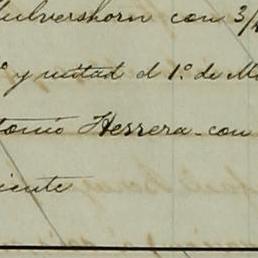 Hulvershorn con 3/4
º y mitad el 1º. de M
tonio Herrera - con
iente